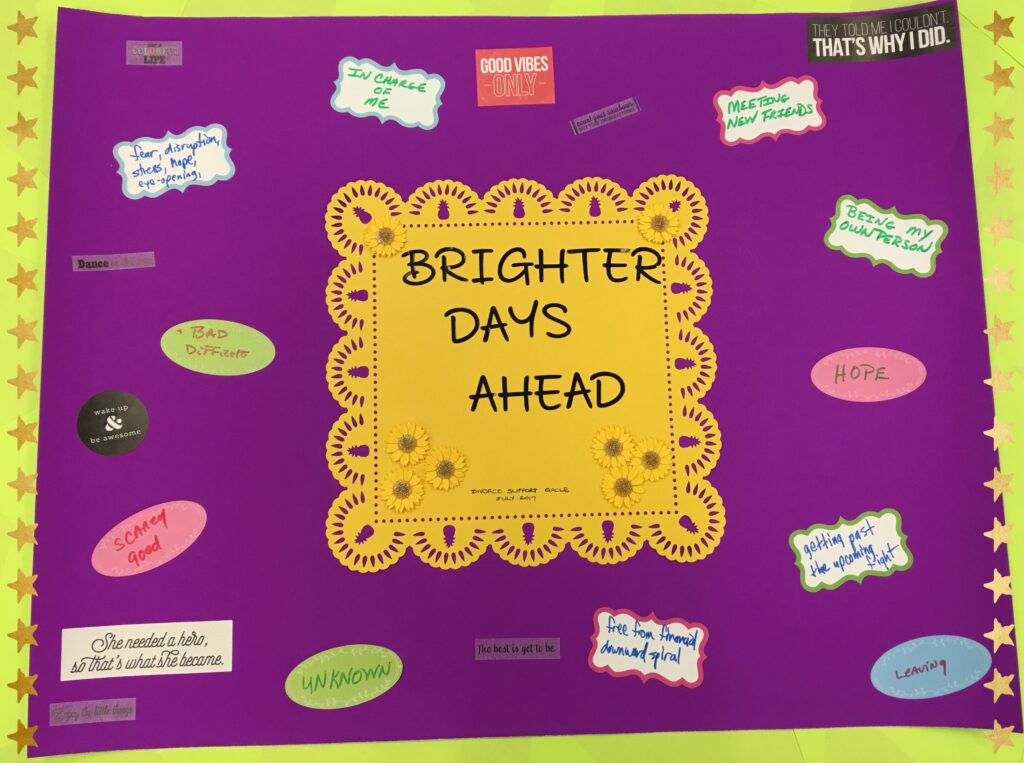 COLORFUL
LIFE
IN CHARGE
OF
ME
GOOD VIBES
ONLY
THEY TOLD ME I COULDN'T.
THAT'S WHY I DID.
count your rainbows
MEETING
NEW FRIENDS
fear, disruption,
stress, hope,
eye-opening,
BEING MY
OWN PERSON
Dance
BRIGHTER
DAYS
AHEAD
BAD
DIFFICULT
HOPE
wake up
&
be awesome
DIVORCE SUPPORT CIRCLE
JULY 2017
SCAREY
good
getting past
the upcoming
fight
She needed a hero,
so that's what she became.
UNKNOWN
The best is yet to be
free from financial
downward spiral
LEAVING
Enjoy the little things